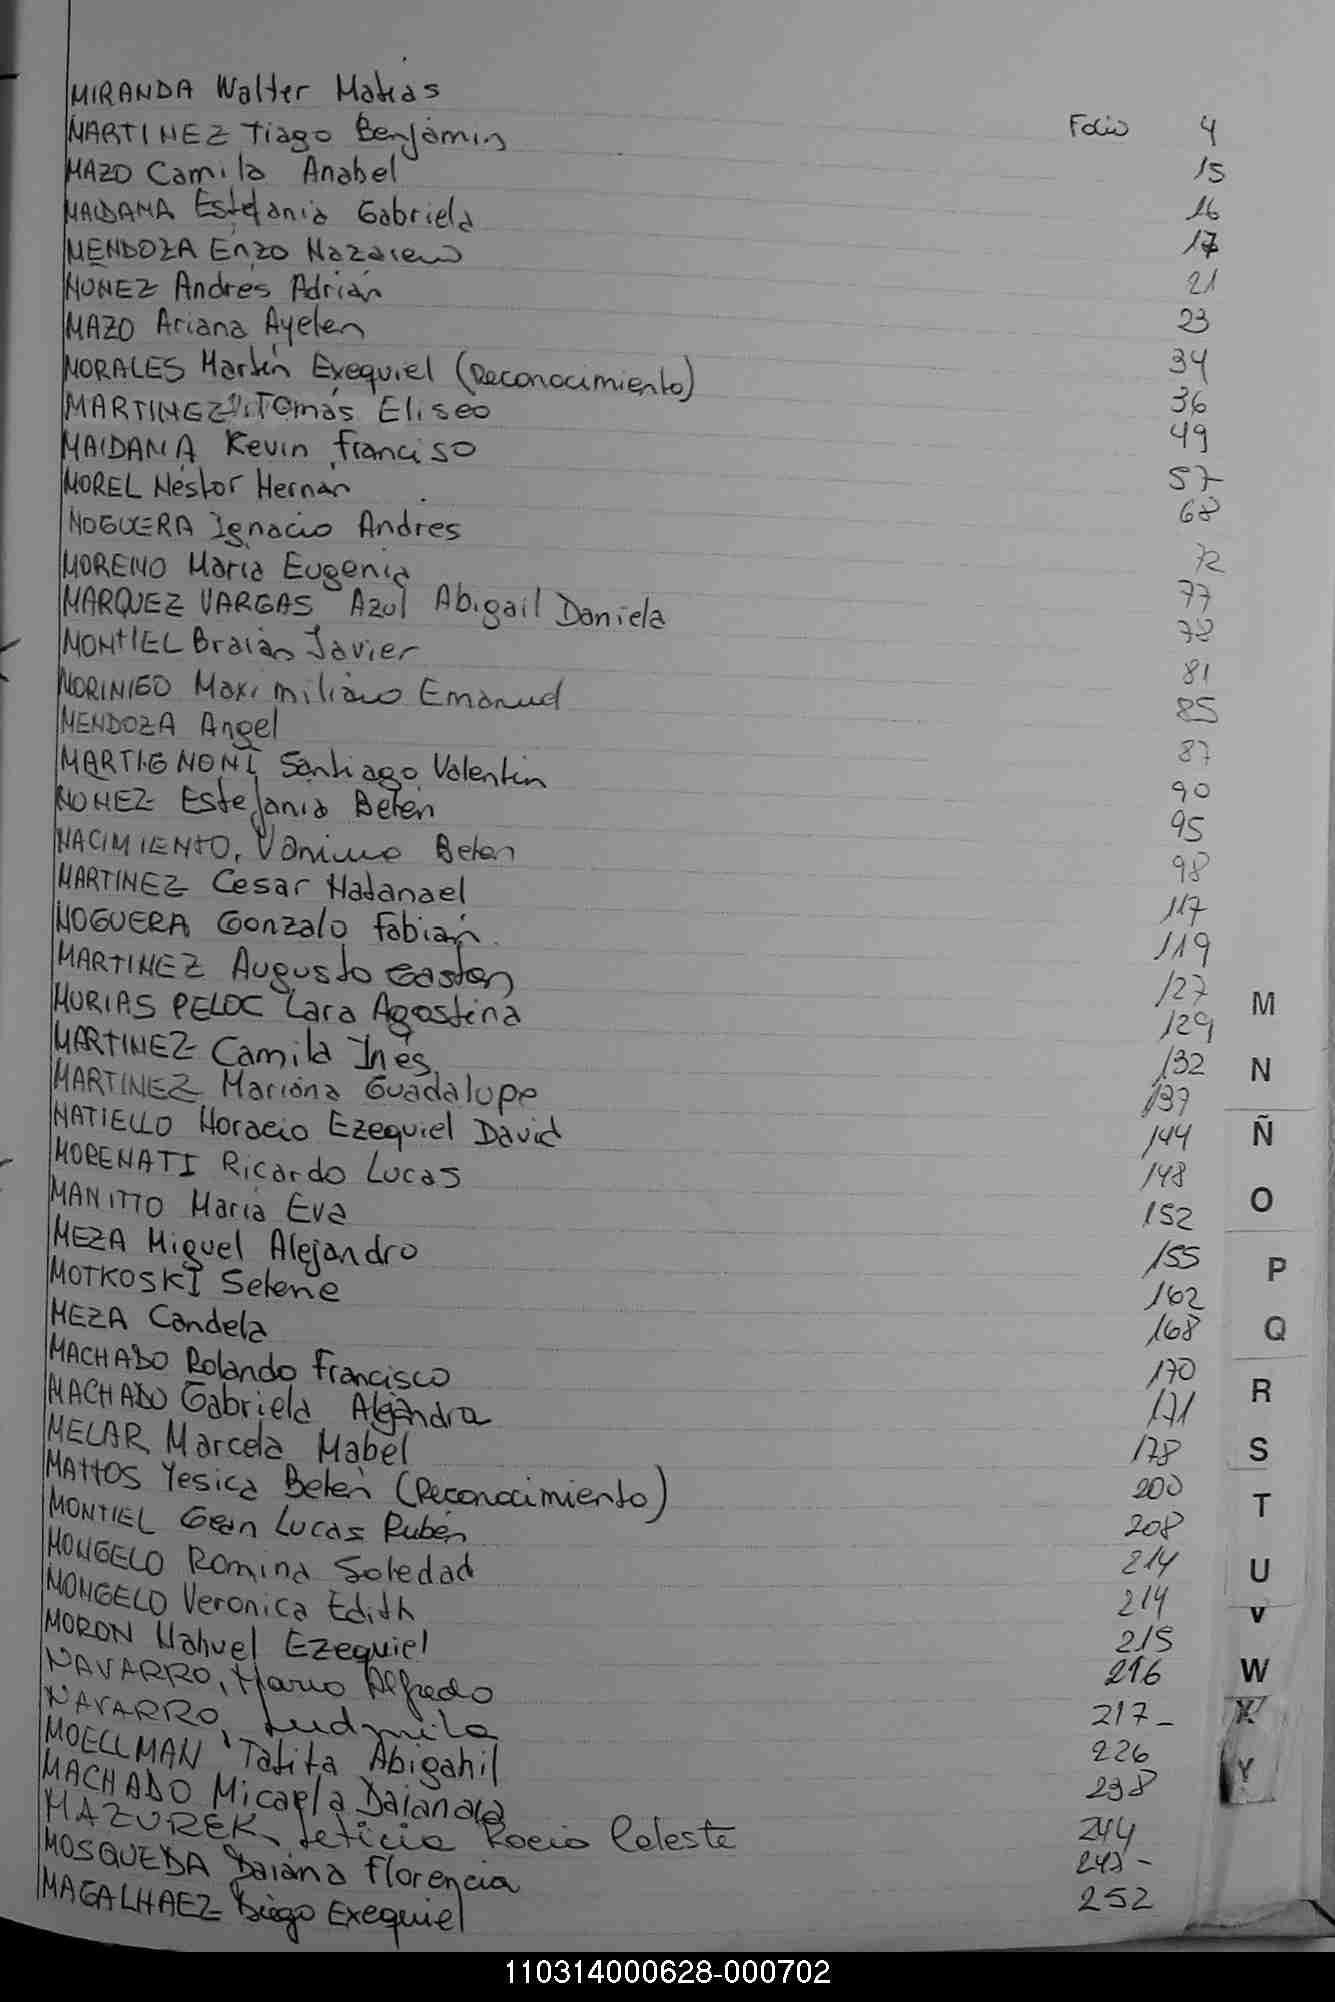 MIRANDA Walter Matias Folio 4
MARTINEZ Tiago Benjamin 15
MAZO Camila Anabel 16
MAIDANA Estefania Gabriela 17
MENDOZA Enzo Nazareno 21
NUÑEZ Andrés Adrián 23
MAZO Ariana Ayelen 34
MORALES Martín Exequiel (Reconocimiento) 36
MARTINEZ Tomás Eliseo 49
MAIDANA Kevin Franciso 57
MOREL Néstor Hernán 68
NOGUERA Ignacio Andres 72
MORENO Maria Eugenia 77
MARQUEZ VARGAS Azul Abigail Daniela 78
MONTIEL Braian Javier 81
NORINIGO Maximiliano Emanuel 85
MENDOZA Angel 87
MARTIGNONI Santiago Valentin 90
NUÑEZ Estefania Belén 95
NACIMIENTO, Belen 98
MARTINEZ Cesar Natanael 117
NOGUERA Gonzalo Fabián 119
MARTINEZ Augusto Gaston 127
MURIAS PELOC Lara Agostina 129
MARTINEZ Camila Inés 132
MARTINEZ Mariana Guadalupe 137
MATIELLO Horacio Ezequiel David 144
MORENATI Ricardo Lucas 148
MANITTO Maria Eva 152
MEZA Miguel Alejandro 155
MOTKOSKI Selene 162
MEZA Candela 168
MACHADO Rolando Francisco 170
MACHADO Gabriela Alejandra 171
MELAR Marcela Mabel 178
MATTOS Yesica Belén (Reconocimiento) 200
MONTIEL Gean Lucas Rubén 208
MONGELO Romina Soledad 214
MONGELO Veronica Edith 214
MORON Nahuel Ezequiel 215
NAVARRO, Mario Alfredo 216
NAVARRO, Ludmila 217-
MOELLMAN Tatita Abigahil 226
MACHADO Micaela Daiana 238
MAZUREK, Leticia Rocio Celeste 244
MOSQUEDA Daiana Florencia
MAGALHAEZ Diego Exequiel 252
M
N
Ñ
O
P
Q
R
S
T
U
V
W
X
Y
110314000628-000702